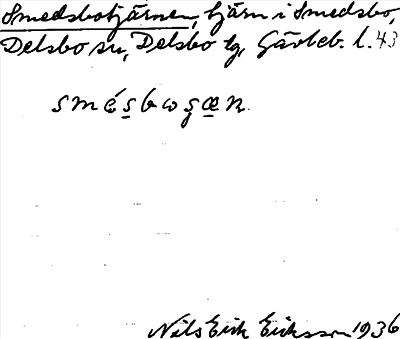 Smedsbotjärnen, tjärn i Smedsbo,
Delsbo sn, Delsbo tg, Gävleb. l. 43
smésbwsæn.
Nils Erik Eriksson 1936